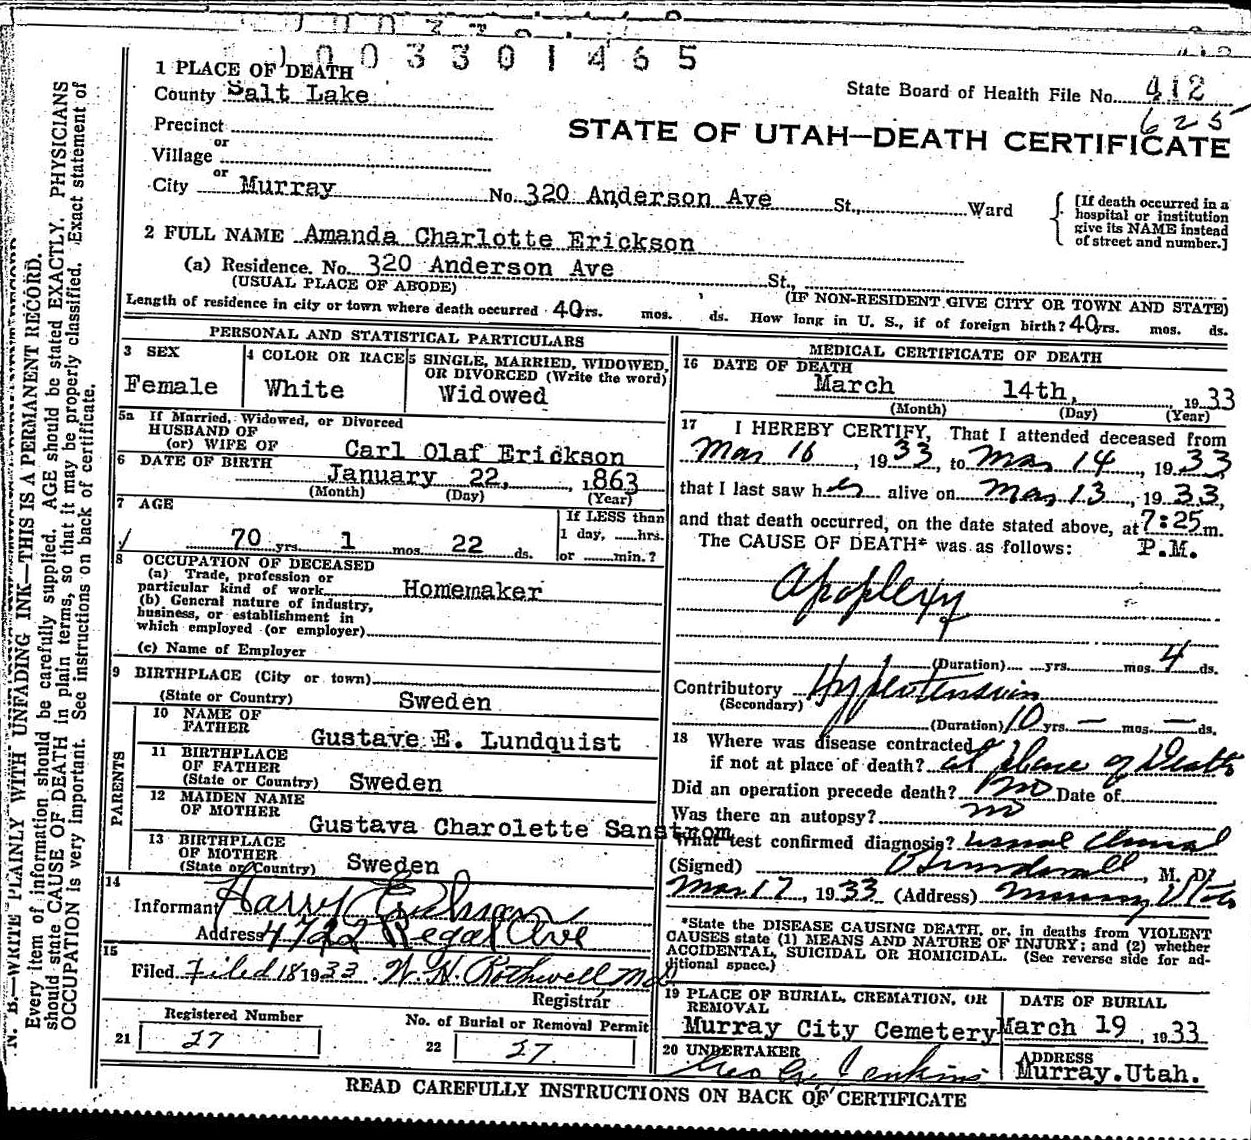 1003301465
1 PLACE OF DEATH
County Salt Lake
State Board of Health File No. 412
625
Precinct
or
Village
or
STATE OF UTAH—DEATH CERTIFICATE
City Murray No. 320 Anderson Ave St., Ward
[If death occurred in a hospital or institution give its NAME instead of street and number.]
2 FULL NAME Amanda Charlotte Erickson
(a) Residence. No. 320 Anderson Ave St.,
(USUAL PLACE OF ABODE) (IF NON-RESIDENT GIVE CITY OR TOWN AND STATE)
Length of residence in city or town where death occurred 40 yrs. mos. ds. How long in U. S., if of foreign birth? 40 yrs. mos. ds.
PERSONAL AND STATISTICAL PARTICULARS
3 SEX
Female
4 COLOR OR RACE
White
5 SINGLE, MARRIED, WIDOWED, OR DIVORCED (Write the word)
Widowed
5a If Married, Widowed, or Divorced
HUSBAND OF
(or) WIFE OF Carl Olaf Erickson
6 DATE OF BIRTH January 22, 1863
(Month) (Day) (Year)
7 AGE
70 yrs. 1 mos. 22 ds.
If LESS than
1 day, ......hrs.
or ......min.?
8 OCCUPATION OF DECEASED
(a) Trade, profession or
particular kind of work Homemaker
(b) General nature of industry,
business, or establishment in
which employed (or employer)
(c) Name of Employer
9 BIRTHPLACE (City or town)
(State or Country) Sweden
PARENTS
10 NAME OF
FATHER Gustave E. Lundquist
11 BIRTHPLACE
OF FATHER
(State or Country) Sweden
12 MAIDEN NAME
OF MOTHER Gustava Charolette Sanstrom
13 BIRTHPLACE
OF MOTHER
(State or Country) Sweden
14
Informant Harry Erickson
Address 4722 Regal Ave
15
Filed Filed 18 1933 W. H. Rothwell Md
Registrar
Registered Number
21 27
No. of Burial or Removal Permit
22 27
MEDICAL CERTIFICATE OF DEATH
16 DATE OF DEATH
March 14th, 1933
(Month) (Day) (Year)
17 I HEREBY CERTIFY, That I attended deceased from
Mar 16, 1933, to Mar 14, 1933
that I last saw her alive on Mar 13, 1933,
and that death occurred, on the date stated above, at 7:25 m.
The CAUSE OF DEATH* was as follows: P.M.
Apoplexy
(Duration) yrs. mos. 4 ds.
Contributory Hypertension
(Secondary)
(Duration) 10 yrs. — mos. — ds.
18 Where was disease contracted
if not at place of death? at place of Death
Did an operation precede death? no Date of
Was there an autopsy? no
What test confirmed diagnosis? usual Clinical
(Signed) M. D.
Mar 17, 1933 (Address) Murray Utah
*State the DISEASE CAUSING DEATH, or, in deaths from VIOLENT
CAUSES state (1) MEANS AND NATURE OF INJURY; and (2) whether
ACCIDENTAL, SUICIDAL OR HOMICIDAL. (See reverse side for ad-
ditional space.)
19 PLACE OF BURIAL, CREMATION, OR
REMOVAL
Murray City Cemetery
DATE OF BURIAL
March 19, 1933
20 UNDERTAKER
Jenkins
ADDRESS
Murray.Utah.
READ CAREFULLY INSTRUCTIONS ON BACK OF CERTIFICATE
N. B.—WRITE PLAINLY WITH UNFADING INK—THIS IS A PERMANENT RECORD.
Every item of information should be carefully supplied. AGE should be stated EXACTLY. PHYSICIANS
should state CAUSE OF DEATH in plain terms, so that it may be properly classified. Exact statement of
OCCUPATION is very important. See instructions on back of certificate.